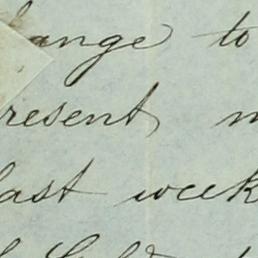 ange to
resent
last week